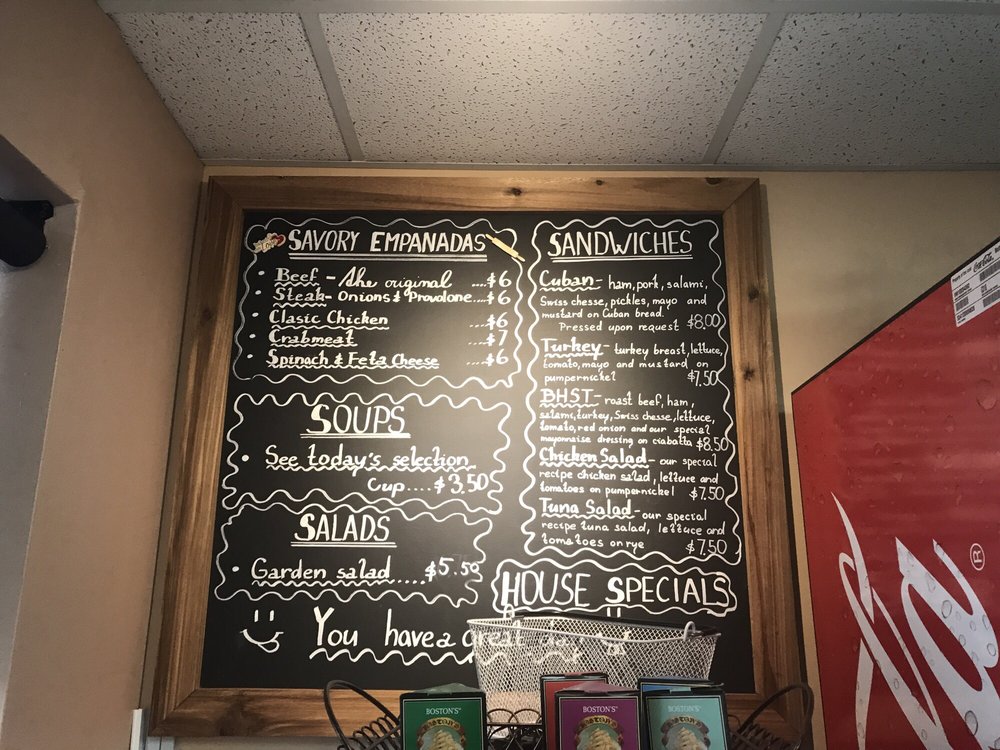 SAVORY EMPANADAS
• Beef - The original ....$6
• Steak - Onions & Provolone ....$6
• Clasic Chicken ....$6
• Crabmeat ....$7
• Spinach & Feta Cheese ....$6
SOUPS
• See today's selection
Cup....$3.50
SALADS
• Garden salad.....$5.50
You have a great
SANDWICHES
Cuban - ham, pork, salami,
Swiss chesse, pickles, mayo and
mustard on Cuban bread.
Pressed upon request $8.00
Turkey - turkey breast, lettuce,
tomato, mayo and mustard on
pumpernickel $7.50
BHST - roast beef, ham,
salami, turkey, Swiss chesse, lettuce,
tomato, red onion and our special
mayonnaise dressing on ciabatta $8.50
Chicken Salad - our special
recipe chicken salad, lettuce and
tomatoes on pumpernickel $7.50
Tuna Salad - our special
recipe tuna salad, lettuce and
tomatoes on rye $7.50
HOUSE SPECIALS
BOSTON'S
BOSTON'S
BOSTON'S
Coca-Cola
®